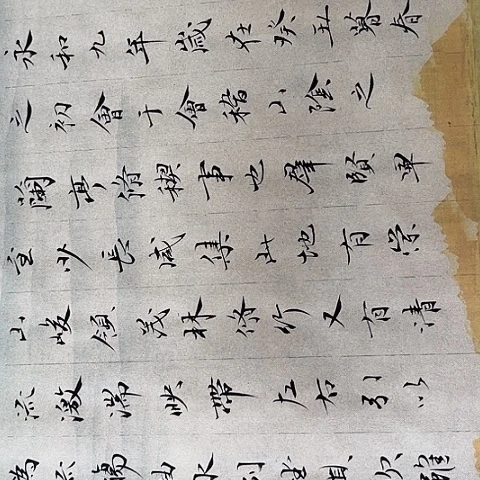 永和九年歲在癸丑暮春
之初會于會稽山陰之
蘭亭脩禊事也羣賢畢
至少長咸集此地有崇
山峻領茂林脩竹又有清
流激湍映帶左右引以
為流觴曲水列坐其次雖